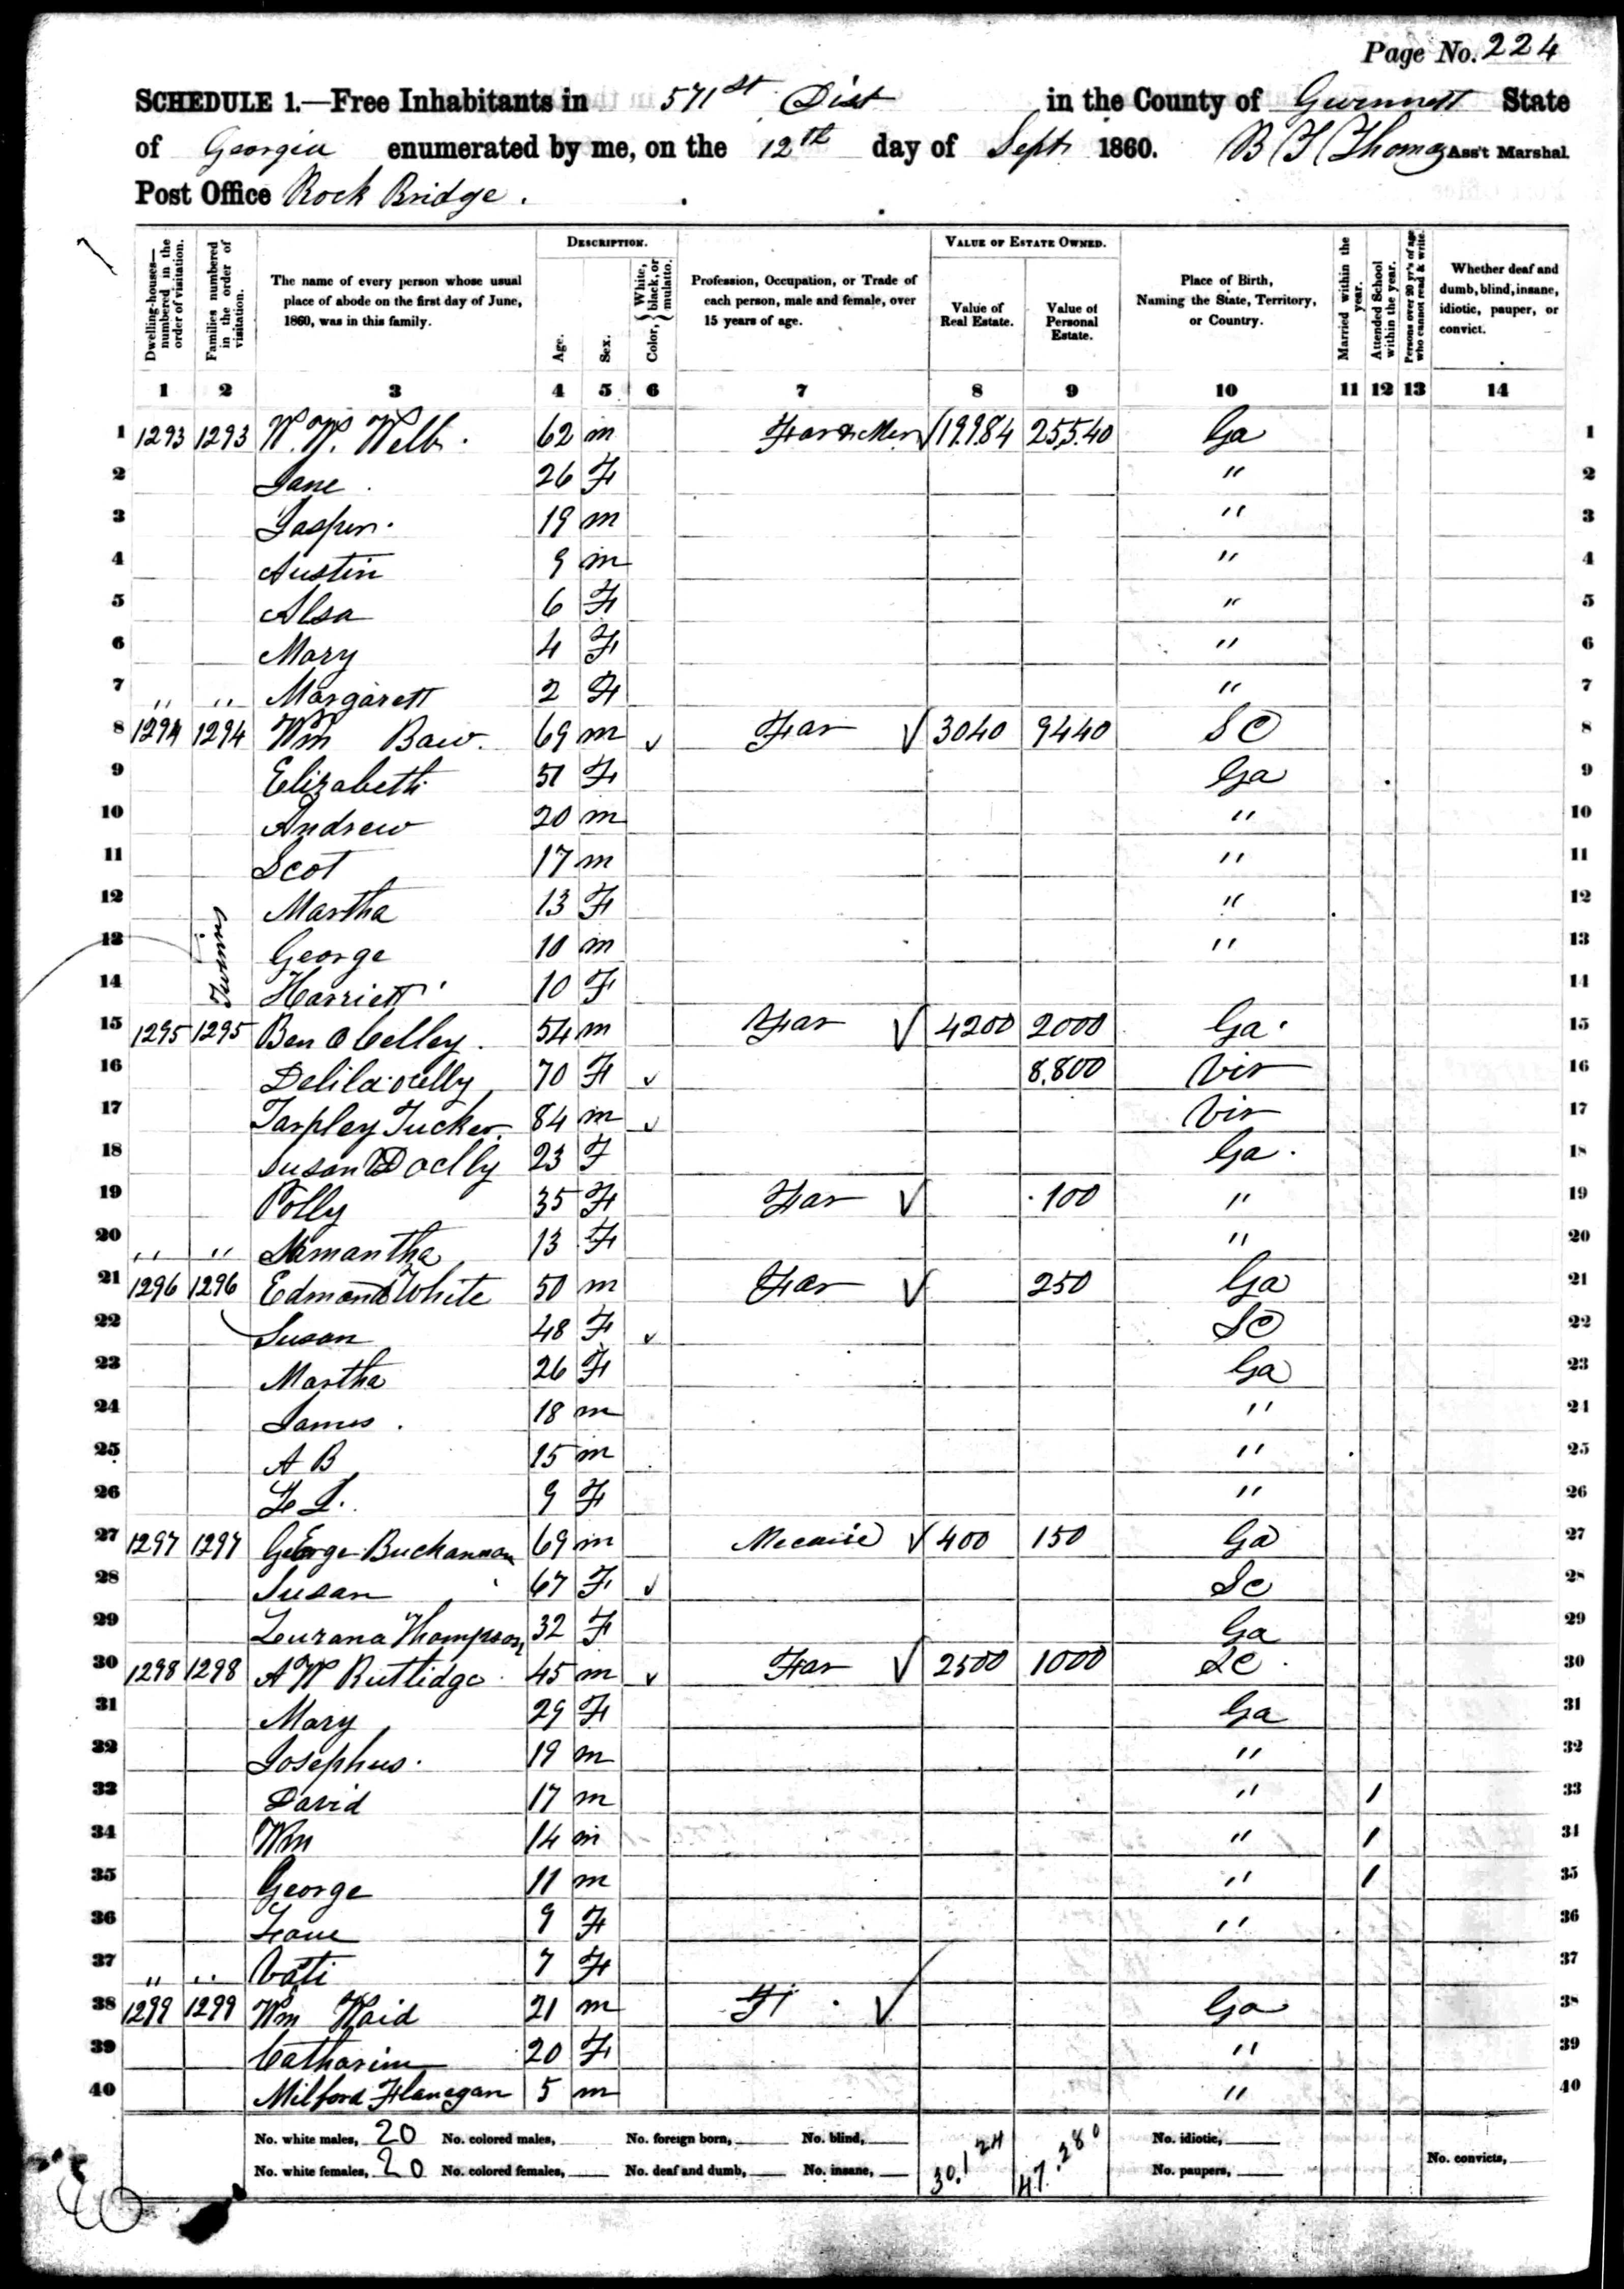 Page No. 224
SCHEDULE 1.—Free Inhabitants in 571st Dist in the County of Gwinnett State
of Georgia enumerated by me, on the 12th day of Sept 1860. B T Thomas Ass't Marshal.
Post Office Rock Bridge.
Dwelling-houses—numbered in the order of visitation.
Families numbered in the order of visitation.
The name of every person whose usual place of abode on the first day of June, 1860, was in this family.
DESCRIPTION.
Age.
Sex.
Color, { White, black, or mulatto.
Profession, Occupation, or Trade of each person, male and female, over 15 years of age.
VALUE OF ESTATE OWNED.
Value of Real Estate.
Value of Personal Estate.
Place of Birth, Naming the State, Territory, or Country.
Married within the year.
Attended School within the year.
Persons over 20 yr's of age who cannot read & write.
Whether deaf and dumb, blind, insane, idiotic, pauper, or convict.
1 2 3 4 5 6 7 8 9 10 11 12 13 14
1 1293 1293 W. W. Webb. 62 m Far & Mer √ 19.984 255.40 Ga 1
2 Jane 26 F " 2
3 Jasper 19 m " 3
4 Austin 9 m " 4
5 Alsa 6 F " 5
6 Mary 4 F " 6
7 " " Margarett 2 F " 7
8 1294 1294 Wm Baw. 69 m √ Far √ 3040 9440 S C 8
9 Elizabeth 51 F Ga 9
10 Andrew 20 m " 10
11 Scot 17 m " 11
12 Martha 13 F " 12
Twins
13 George 10 m " 13
14 Harriett 10 F 14
15 1295 1295 Ben O Celley. 54 m Far √ 4200 2000 Ga. 15
16 Delila 70 F √ 8.800 Vir 16
17 Tarpley Tucker. 84 m √ Vir 17
18 Susan 23 F Ga. 18
19 Polly 35 F Far √ 100 " 19
20 " " Samantha 13 F " 20
21 1296 1296 Edmond White 50 m Far √ 250 Ga 21
22 Susan 48 F √ SC 22
23 Martha 26 F Ga 23
24 James. 18 m " 24
25 A B 15 m " 25
26 9 F " 26
27 1297 1297 George Buchannan 69 m √ 400 150 Ga 27
28 Susan 67 F √ Sc 28
29 Lurana Thompson 32 F Ga 29
30 1298 1298 A W Rutlidge 45 m √ Far √ 2500 1000 SC. 30
31 Mary 29 F Ga 31
32 Josephus. 19 m " 32
33 David 17 m " 1 33
34 Wm 14 m " 1 34
35 George 11 m " 1 35
36 9 F " 36
37 " " 7 F 37
38 1299 1299 Wm Waid 21 m F √ Ga 38
39 Catharine 20 F " 39
40 Milford Flanagan 5 m " 40
No. white males, 20 No. colored males, No. foreign born, No. blind, 30.124 47.280 No. idiotic,
No. white females, 20 No. colored females, No. deaf and dumb, No. insane, No. paupers, No. convicts,
40